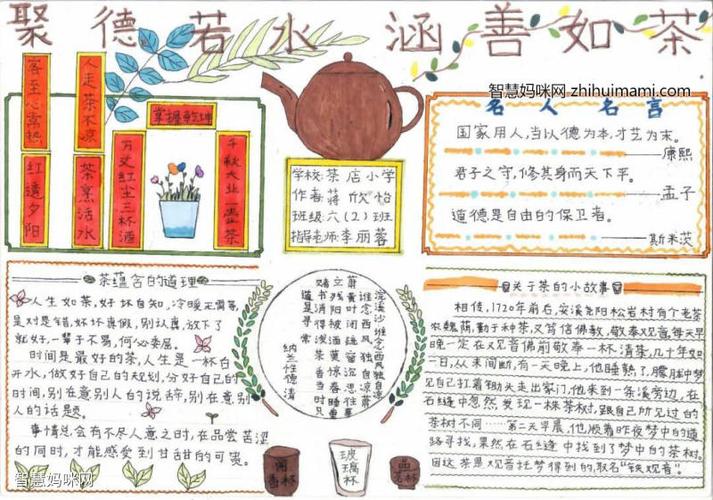 聚德若水 涵善如茶
智慧妈咪网 zhihuimami.com
客至心常热
人走茶不凉
红遗夕阳
茶烹活水
掌握乾坤
万丈红尘三杯酒
千秋大业一壶茶
学校:茶店小学
作者:蒋欣怡
班级:六(2)班
指导老师:李丽蓉
名人名言
国家用人,当以德为本,才艺为末。
——康熙
君子之守,修其身而天下平。
——孟子
道德是自由的保卫者。
——斯米茨
茶蕴含的道理
人生如茶,好坏自知,冷暖无需等,
是对是错,好坏真假,别认真,放下了
就好,一辈子不易,何必委屈。
时间是最好的茶,人生是一杯白
开水,做好自己的规划,分好自己的
时间,别在意别人的说辞,别在意别
人的话题。
事情总会有不尽人意之时,在品尝苦涩
的同时,才能感受到甘甜的可贵。
浣溪沙·谁念西风独自凉
谁念西风独自凉
萧萧黄叶闭疏窗
沉思往事立残阳
被酒莫惊春睡重
赌书消得泼茶香
当时只道是寻常
纳兰性德 清
闻香杯
玻璃杯
品茗杯
关于茶的小故事
相传,1720年前后,安溪尧阳松岩村有个老茶
农魏荫,勤于种茶,又笃信佛教,敬奉观音。每天早
晚一定在观音佛前敬奉一杯清茶,几十年如
一日,从未间断,有一天晚上,他睡熟了,朦胧中梦
见自己扛着锄头走出家门,他来到一条溪旁边,在
石缝中忽然发现一株茶树,跟自己所见过的
茶树不同……第二天早晨,他顺着昨夜梦中的道
路寻找,果然在石缝中找到了梦中的茶树。
因这茶是观音托梦得到的,取名“铁观音”。
智慧妈咪网